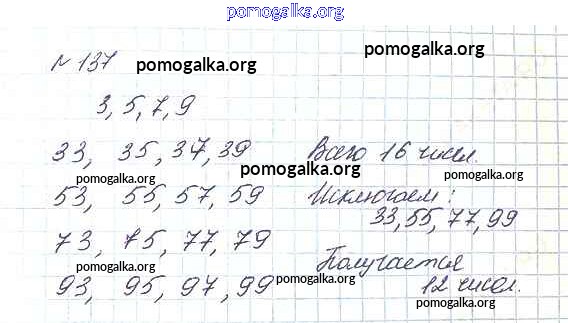 pomogalka.org
№ 137 pomogalka.org pomogalka.org
3, 5, 7, 9
33, 35, 37, 39 Всего 16 чисел.
pomogalka.org
pomogalka.org pomogalka.org
53, 55, 57, 59 Исключаем:
33, 55, 77, 99
73, 75, 77, 79
Получается
pomogalka.org pomogalka.org pomogalka.org
93, 95, 97, 99 12 чисел.
pomogalka.org